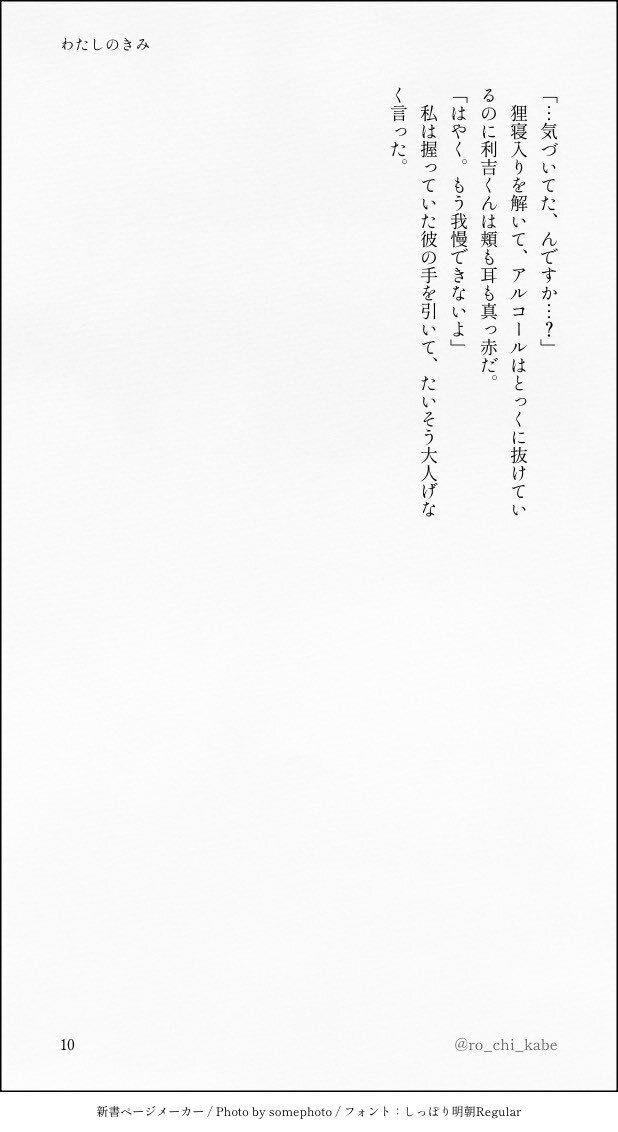 わたしのきみ
「…気づいてた、んですか…？」
　狸寝入りを解いて、アルコールはとっくに抜けてい
るのに利吉くんは頬も耳も真っ赤だ。
「はやく。もう我慢できないよ」
　私は握っていた彼の手を引いて、たいそう大人げな
く言った。
10
@ro_chi_kabe
新書ページメーカー / Photo by somephoto / フォント：しっぽり明朝Regular